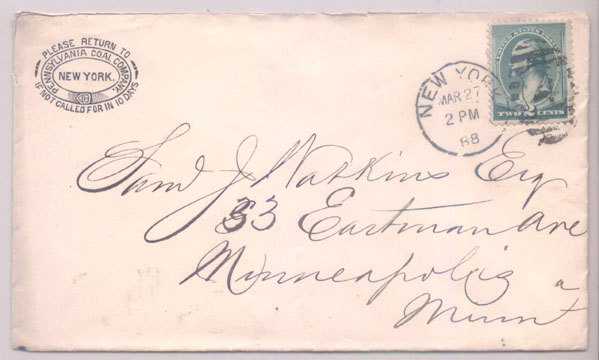 PLEASE RETURN TO
PENNSYLVANIA COAL COMPANY,
NEW YORK.
IF NOT CALLED FOR IN 10 DAYS
NEW YORK
MAR 27
2 PM
88
TWO CENTS
Saml J Watkins Esq
33 Eastman Ave
Minneapolis
Minn